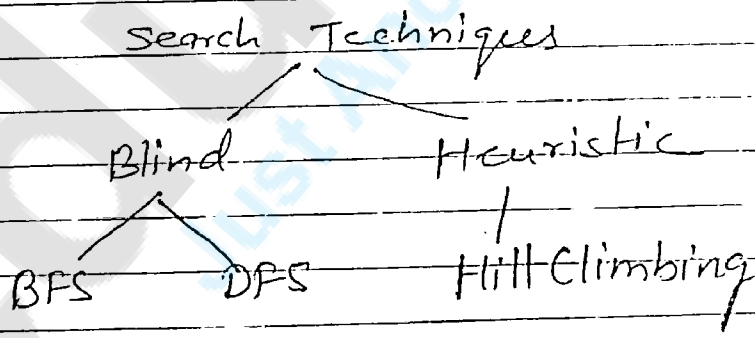 Search Techniques
Blind Heuristic
BFS DFS Hill Climbing